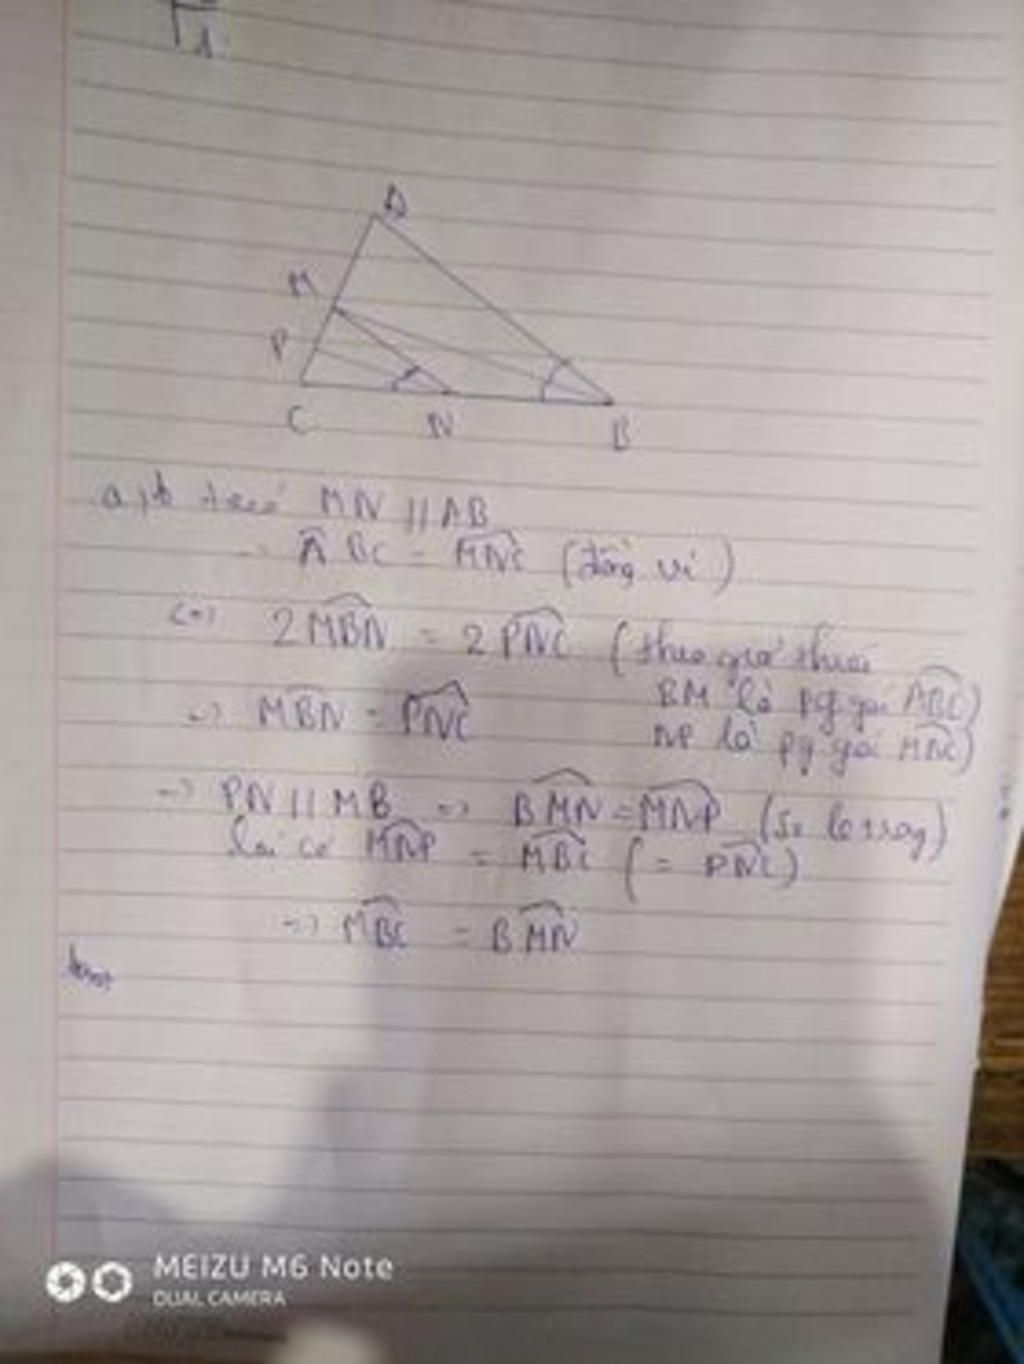 A
M
P
C N B
a, ta có MN // AB
=> ABC = MNC (đồng vị)
<=> 2MBN = 2PNC (theo giả thiết
BM là pg góc ABC)
=> MBN = PNC
NP là pg góc MNC)
=> PN // MB => BMN = MNP (so le trong)
lại có MNP = MBC (= PNC)
=> MBC = BMN
MEIZU M6 Note
DUAL CAMERA